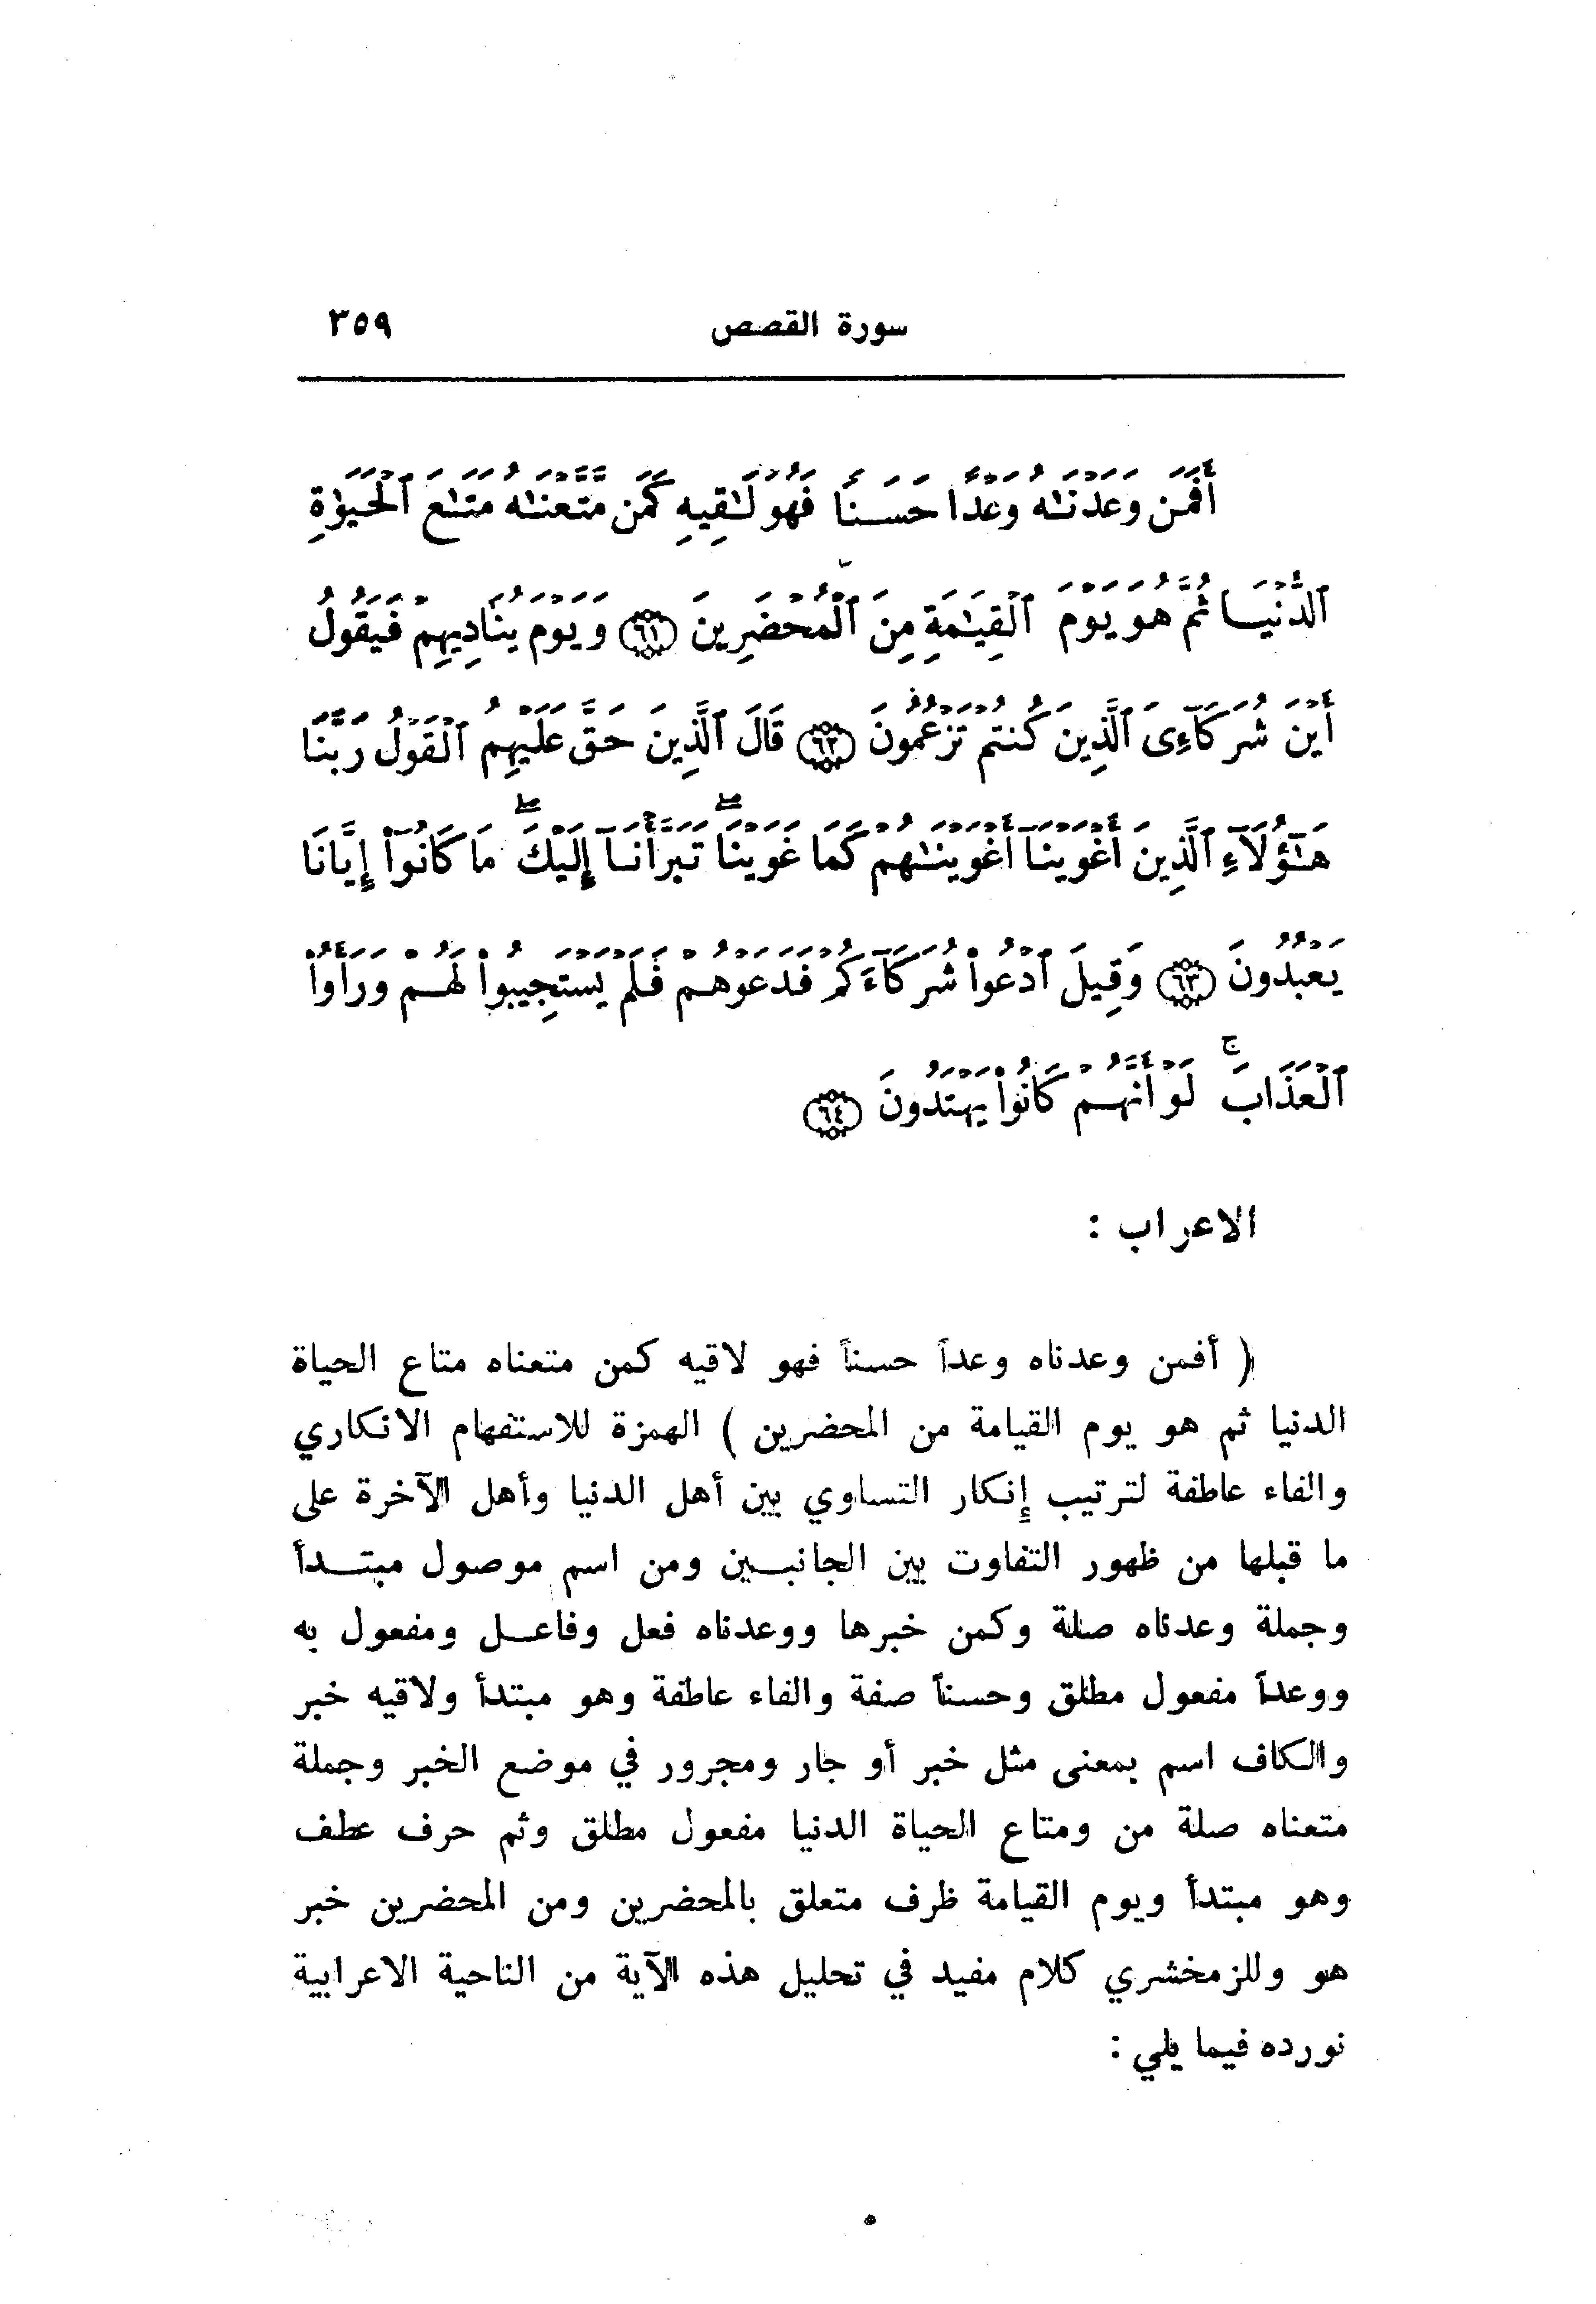 سورة القصص ٣٥٩
أَفَمَن وَعَدْنَٰهُ وَعْدًا حَسَنًا فَهُوَ لَٰقِيهِ كَمَن مَّتَّعْنَٰهُ مَتَٰعَ ٱلْحَيَوٰةِ
ٱلدُّنْيَا ثُمَّ هُوَ يَوْمَ ٱلْقِيَٰمَةِ مِنَ ٱلْمُحْضَرِينَ ٦١ وَيَوْمَ يُنَادِيهِمْ فَيَقُولُ
أَيْنَ شُرَكَآءِىَ ٱلَّذِينَ كُنتُمْ تَزْعُمُونَ ٦٢ قَالَ ٱلَّذِينَ حَقَّ عَلَيْهِمُ ٱلْقَوْلُ رَبَّنَا
هَٰٓؤُلَآءِ ٱلَّذِينَ أَغْوَيْنَآ أَغْوَيْنَٰهُمْ كَمَا غَوَيْنَا ۖ تَبَرَّأْنَآ إِلَيْكَ ۖ مَا كَانُوٓا۟ إِيَّانَا
يَعْبُدُونَ ٦٣ وَقِيلَ ٱدْعُوا۟ شُرَكَآءَكُمْ فَدَعَوْهُمْ فَلَمْ يَسْتَجِيبُوا۟ لَهُمْ وَرَأَوُا۟
ٱلْعَذَابَ ۚ لَوْ أَنَّهُمْ كَانُوا۟ يَهْتَدُونَ ٦٤
الاعراب :
( أفمن وعدناه وعداً حسناً فهو لاقيه كمن متعناه متاع الحياة
الدنيا ثم هو يوم القيامة من المحضرين ) الهمزة للاستفهام الانكاري
والفاء عاطفة لترتيب إنكار التساوي بين أهل الدنيا وأهل الآخرة على
ما قبلها من ظهور التفاوت بين الجانبين ومن اسم موصول مبتدأ
وجملة وعدناه صلة وكمن خبرها ووعدناه فعل وفاعل ومفعول به
ووعداً مفعول مطلق وحسناً صفة والفاء عاطفة وهو مبتدأ ولاقيه خبر
والكاف اسم بمعنى مثل خبر أو جار ومجرور في موضع الخبر وجملة
متعناه صلة من ومتاع الحياة الدنيا مفعول مطلق وثم حرف عطف
وهو مبتدأ ويوم القيامة ظرف متعلق بالمحضرين ومن المحضرين خبر
هو وللزمخشري كلام مفيد في تحليل هذه الآية من الناحية الاعرابية
نورده فيما يلي :